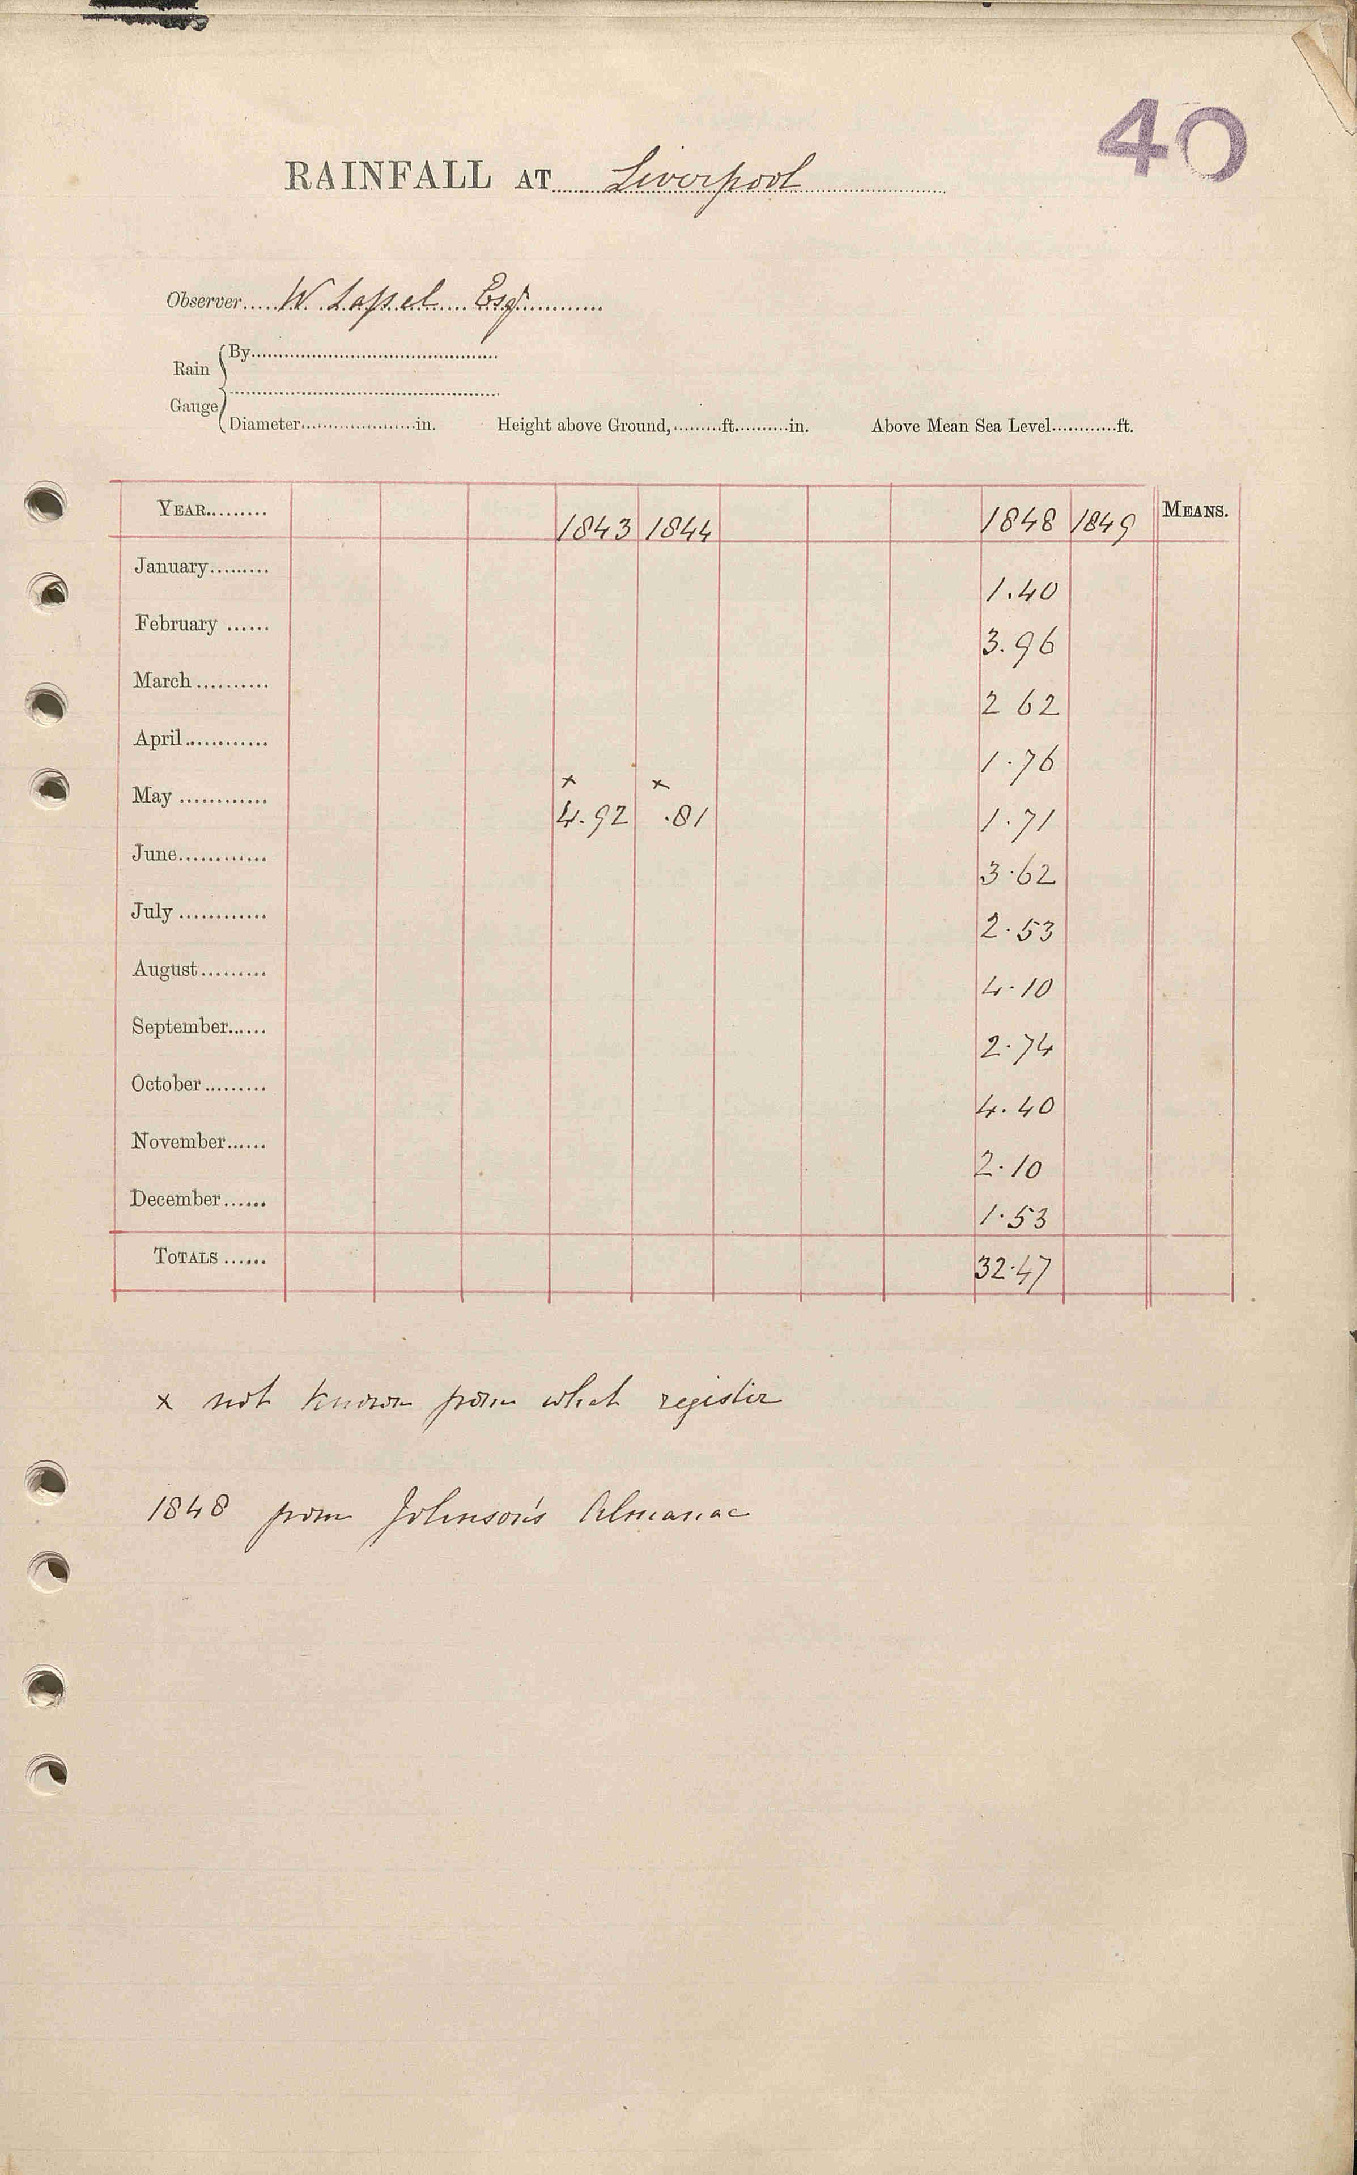 40
RAINFALL AT Liverpool
Observer W. Lassel Esqr
Rain Gauge
By
Diameter in. Height above Ground, ft. in. Above Mean Sea Level ft.
YEAR 1843 1844 1848 1849 MEANS.
January 1.40
February 3.96
March 2 62
April 1.76
x x
May 4.92 .81 1.71
June 3.62
July 2.53
August 4.10
September 2.74
October 4.40
November 2.10
December 1.53
TOTALS 32.47
x not known from what register
1848 from Johnson's Almanac